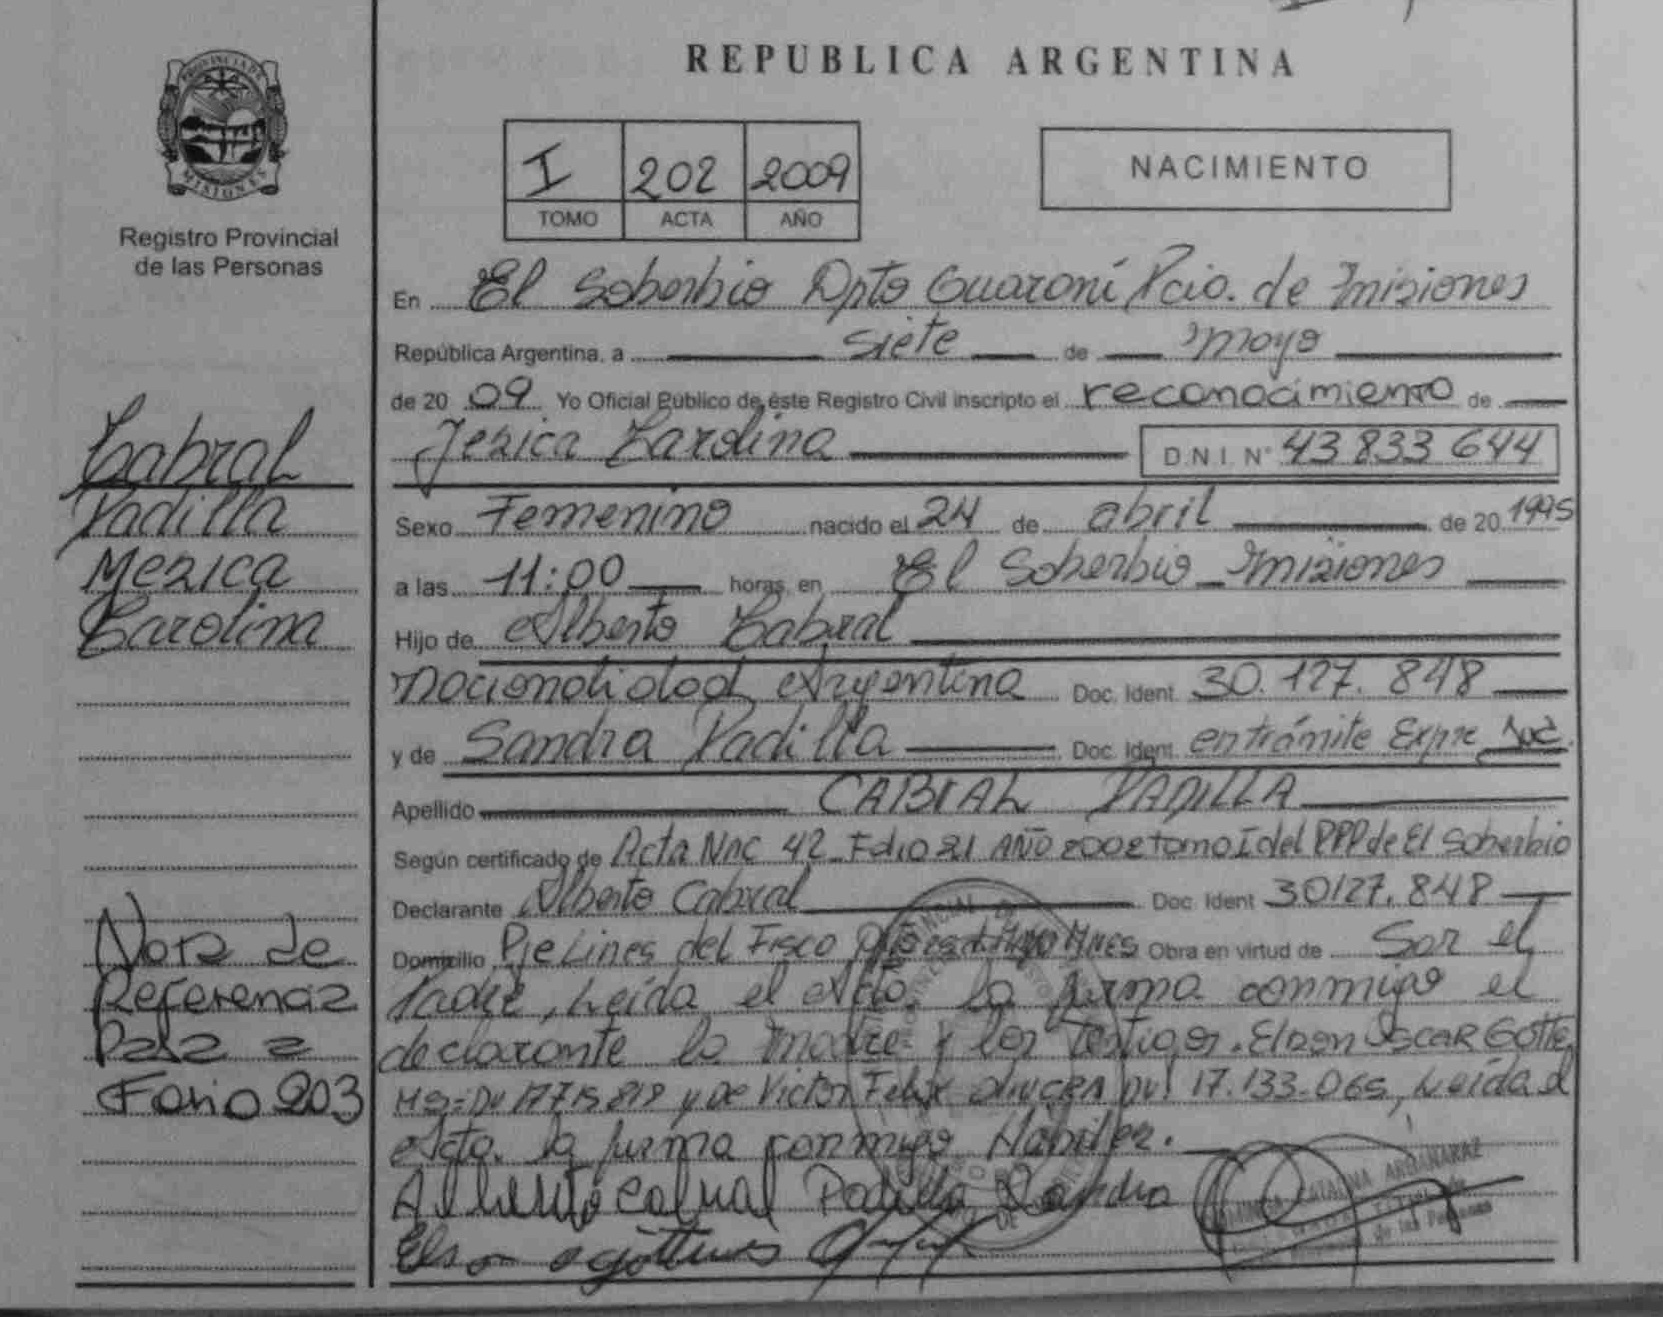 REPUBLICA ARGENTINA
PROVINCIA DE
MISIONES
Registro Provincial
de las Personas
I 202 2009
TOMO ACTA AÑO
NACIMIENTO
En El Soberbio Dpto Guaraní Pcia. de Misiones
República Argentina, a siete de mayo
de 20 09 Yo Oficial Público de éste Registro Civil inscripto el reconocimiento de
Jezica Carolina D.N.I. N° 43 833 644
Sexo Femenino nacido el 24 de abril de 20 1995
a las 11:00 horas, en El Soberbio Misiones
Hijo de Alberto Cabral
nacionalidad Argentina Doc. Ident. 30.127.848
y de Sandra Padilla Doc. Ident. en trámite
Apellido CABRAL PADILLA
Según certificado de Acta Nac 42 Folio 21 AÑO 2002 tomo I del de El Soberbio
Declarante Alberto Cabral Doc. Ident 30127.848
Domicilio Pje Lines del Fisco Obra en virtud de Ser el
Padre, Leída el Acta, la firma conmigo el
declarante la madre y los testigos. Elson Oscar
y de Victor Felix 17.133.065, Leída el
Acta, la firma conmigo
Alberto Cabral Padilla Sandra
CATALINA
de las Personas
Cabral
Padilla
Mezica
Carolina
Nota de
Referencia
Pasa a
Folio 203